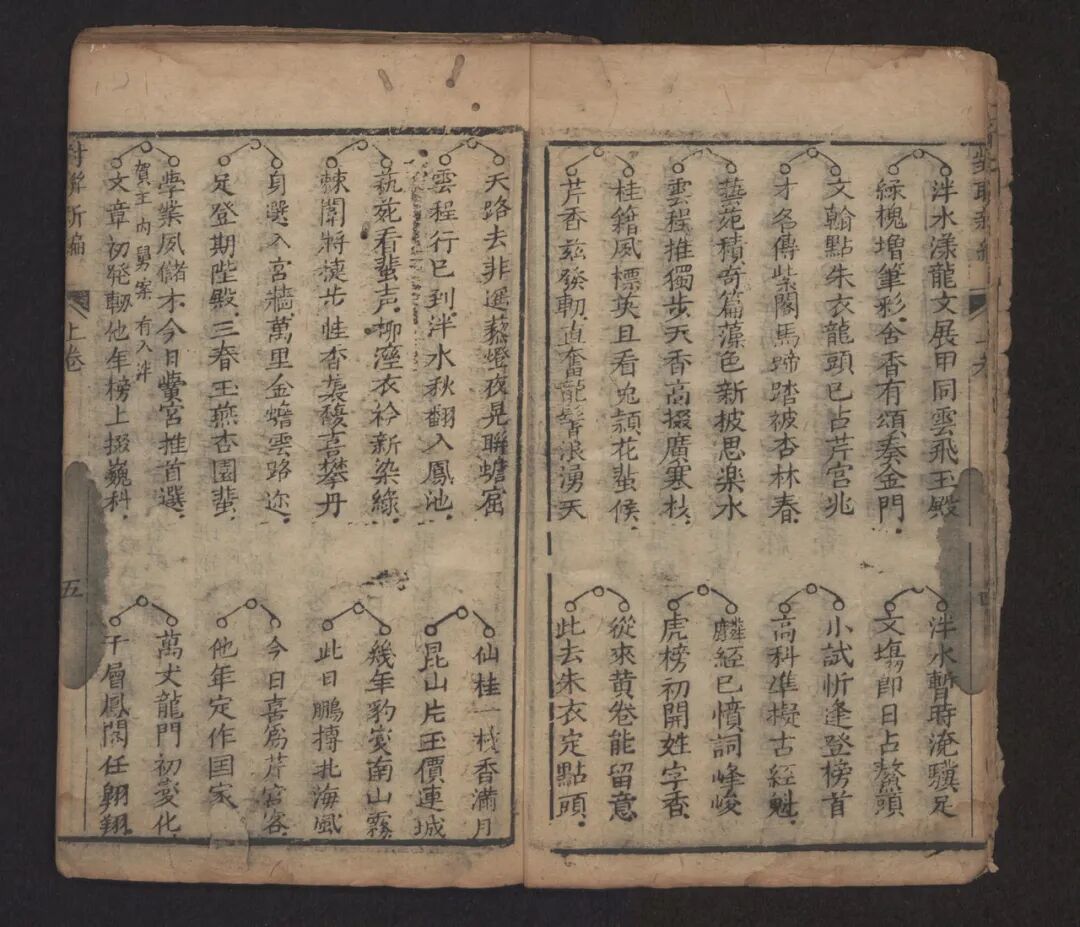 泮水漾龍文展甲同雲飛玉殿
綠槐增筆彩舍香有頌奏金門
文翰點朱衣龍頭已占芹宮兆
才名傳紫閣馬蹄踏被杏林春
藝苑積奇篇藻色新披思樂水
雲程推獨步天香高掇廣寒枝
桂籍夙標英且看兎頴花蜚候
芹香玆發軔直奮龍髯浪湧天
泮水暫時淹驥足
文塲即日占鰲頭
小試忻逢登榜首
高科準擬古經魁
麟經已憤詞峰峻
虎榜初開姓字香
從來黄卷能留意
此去朱衣定點頭
天路去非遥藜燈夜晃聯蟾窟
雲程行已到泮水秋翻入鳳池
藝苑看蜚声柳溼衣衿新染綠
棘闈將捷步桂香裘馥喜攀丹
身選入宮牆萬里金蟾雲路迩
足登期陛殿三春玉燕杏園蜚
學業夙儲才今日黌宮推首選
賀主內舅案有入泮
文章初発軔他年榜上掇巍科
仙桂一枝香滿月
昆山片玉價連城
幾年豹變南山霧
此日鵬摶北海風
今日喜為芹宮客
他年定作国家
萬丈龍門初变化
千層鳳閣任翺翔
對聯新編
上卷
五